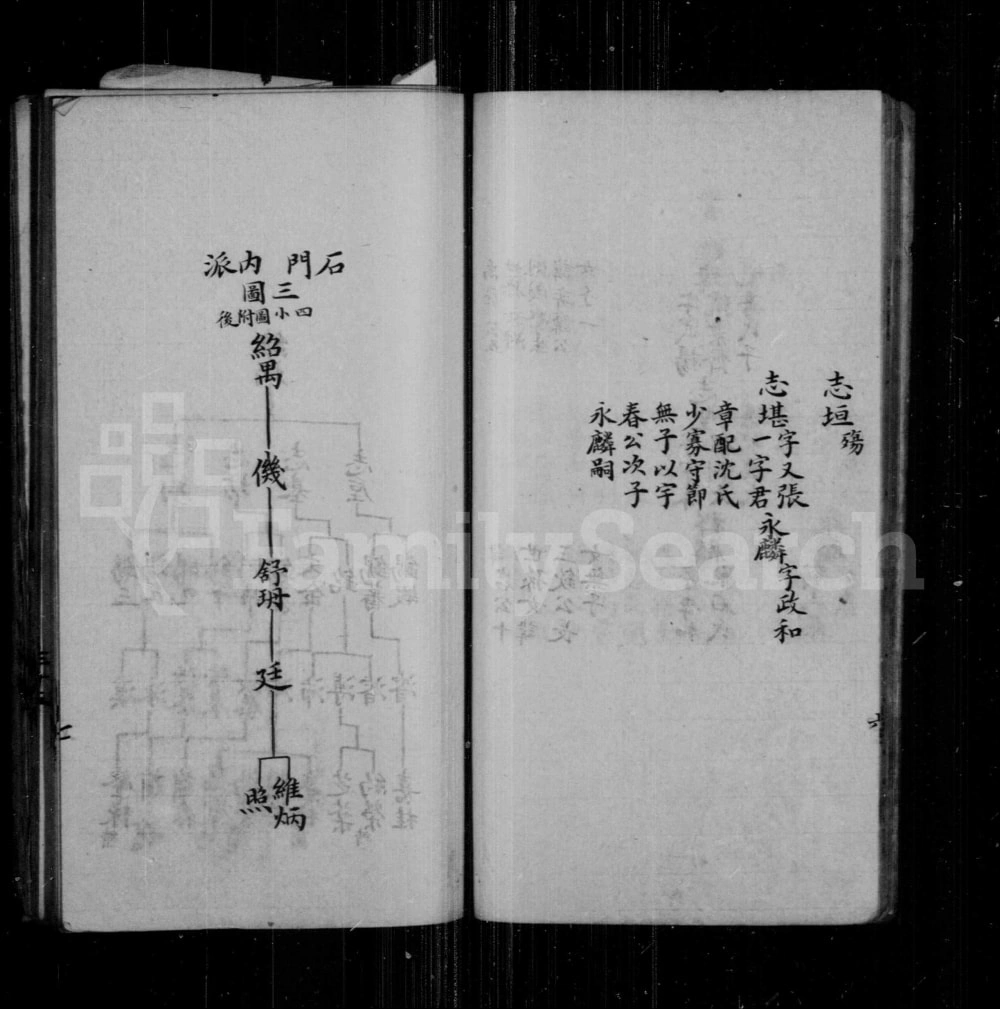 志垣 殤
志堪 字又張
一字君
章配沈氏
少寡守節
無子以宇
春公次子
永麟嗣
永麟 字政和
六
石門內派
三圖
四小圖附後
紹禺
僟
舒珊
廷
維炳
照
七
FamilySearch